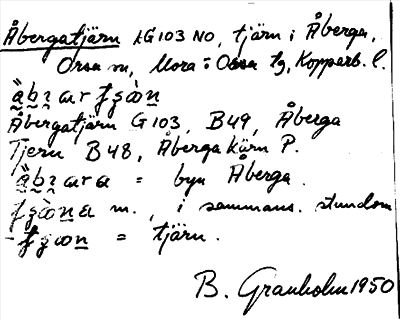 Åbergatjärn AG103 NO, tjärn i Åberga,
Orsa sn, Mora o Orsa tg, Kopparb. l.
Åbergatjärn G103, B49, Åberga
Tjern B48, Åberga kärn P.
= byn Åberga.
m., i sammans. stundom
= tjärn.
B. Granholm 1950